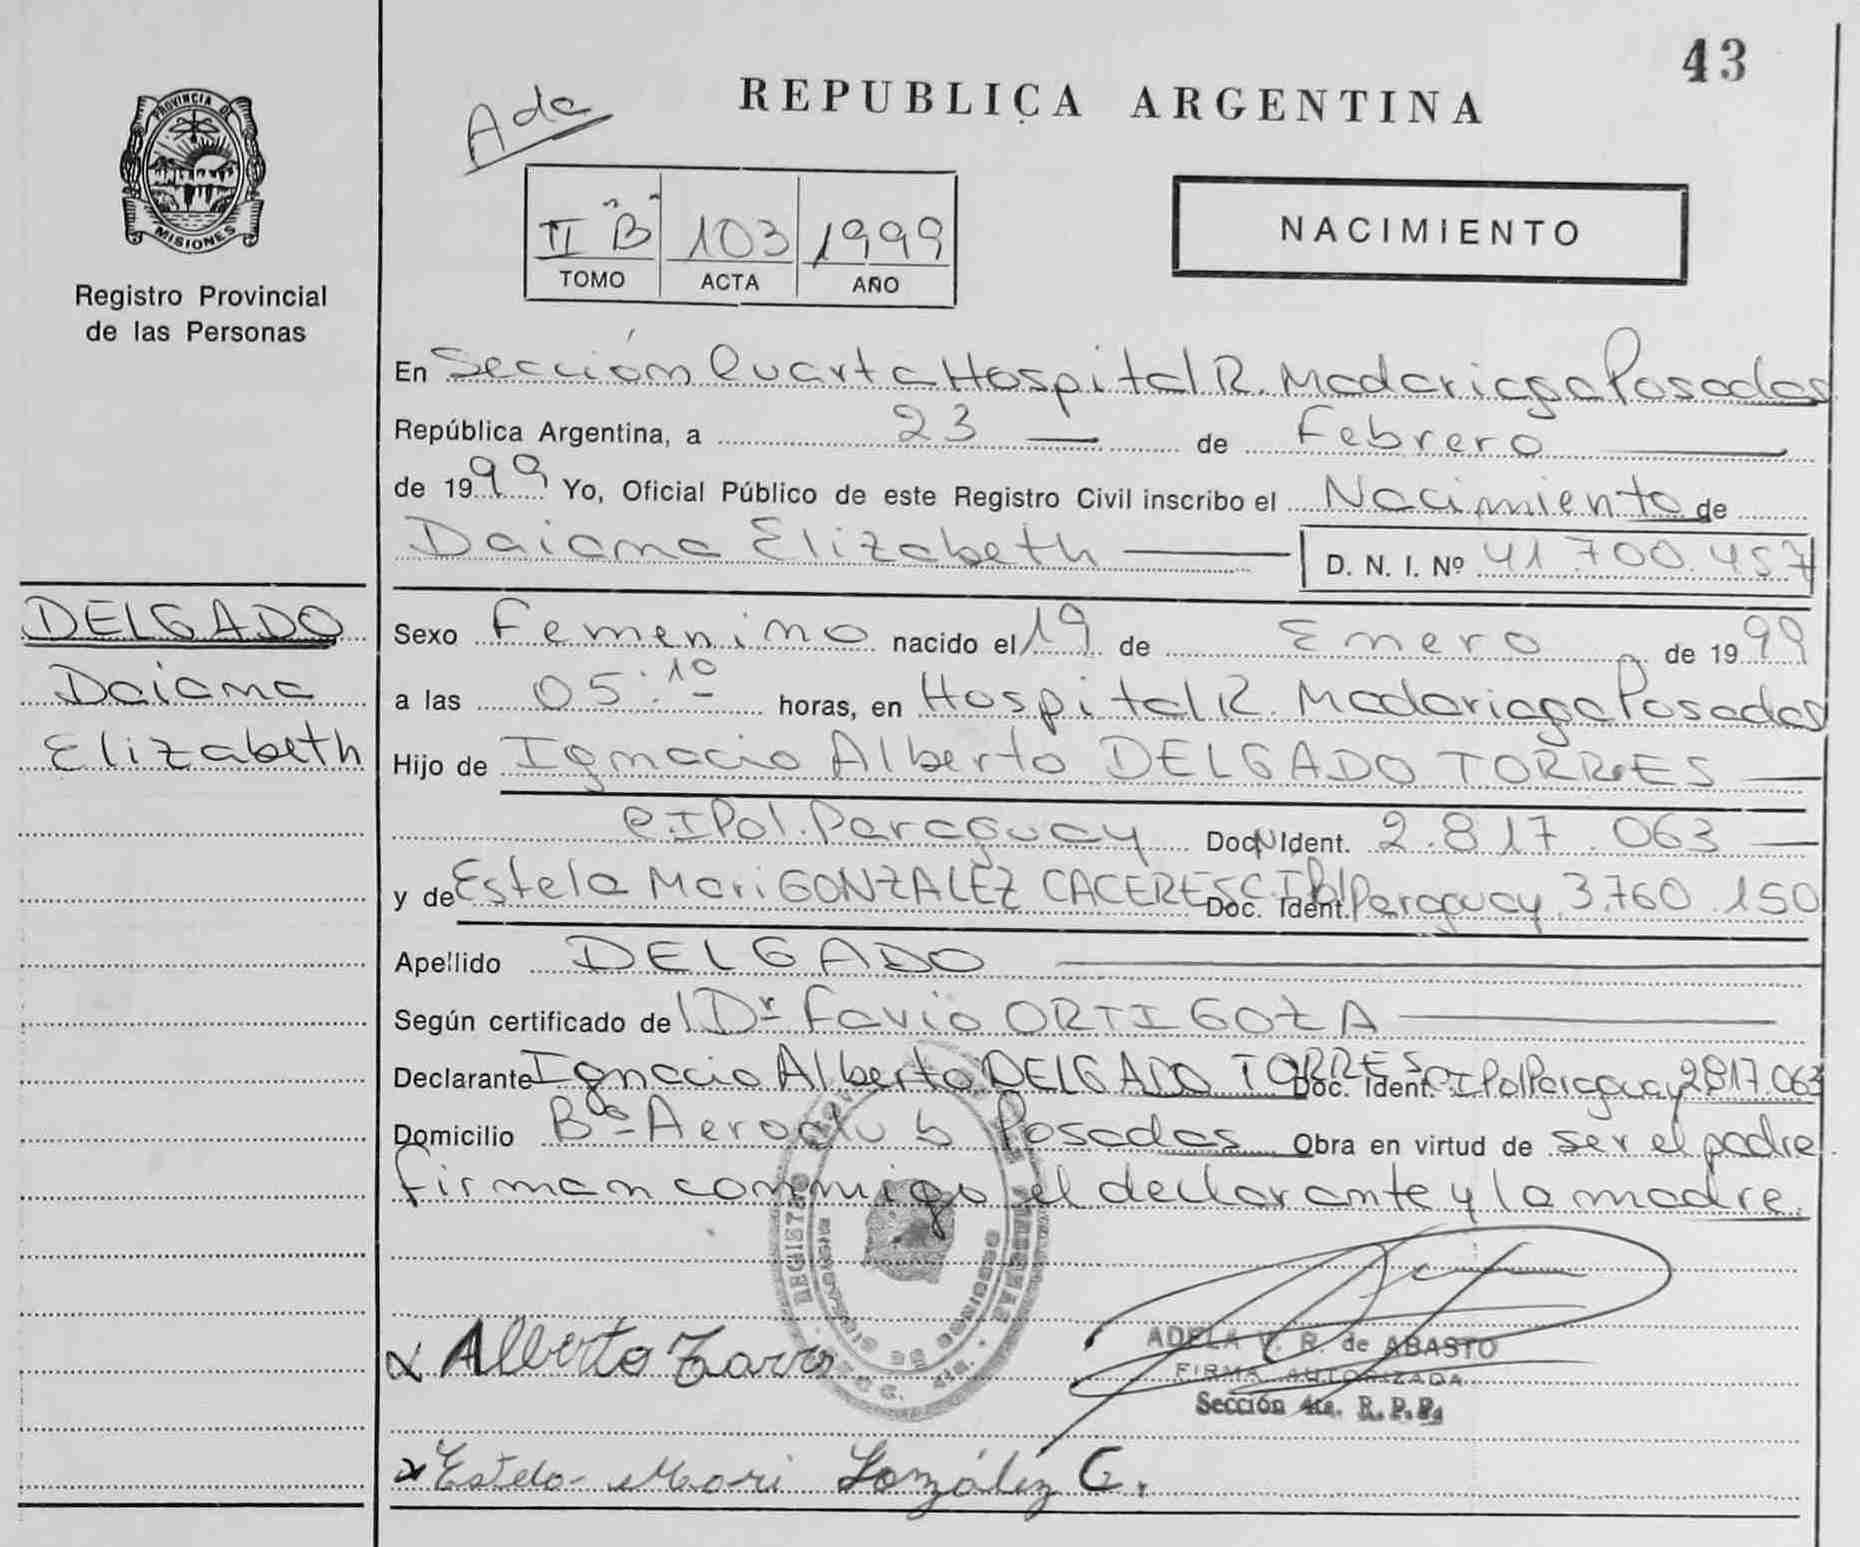 43
REPUBLICA ARGENTINA
Ada
PROVINCIA DE
MISIONES
Registro Provincial
de las Personas
II "B" 103 1999
TOMO ACTA AÑO
NACIMIENTO
En Sección Cuarta Hospital R. Madariaga Posadas
República Argentina, a 23 de Febrero
de 1999 Yo, Oficial Público de este Registro Civil inscribo el Nacimiento de
Daiana Elizabeth D. N. I. Nº 41.700.457
DELGADO
Daiana
Elizabeth
Sexo Femenino nacido el 19 de Enero de 1999
a las 05:10 horas, en Hospital R. Madariaga Posadas
Hijo de Ignacio Alberto DELGADO TORRES
C.I Pol. Paraguay Doc. Ident. 2.817.063
y de Estela Mari GONZALEZ CACERES C.I Pol Paraguay Doc. Ident. 3.760.150
Apellido DELGADO
Según certificado de Dr Favio ORTIGOZA
Declarante Ignacio Alberto DELGADO TORRES Doc. Ident. C.I Pol Paraguay 2817.063
Domicilio Bº Aeroclub Posadas Obra en virtud de ser el padre.
firman conmigo el declarante y la madre.
REGISTRO PERSONAS
MISIONES
x Alberto Torres
ADELA V. R. de ABASTO
FIRMA AUTORIZADA
Sección 4ta. R.P.P.
x Estela Mari González C.